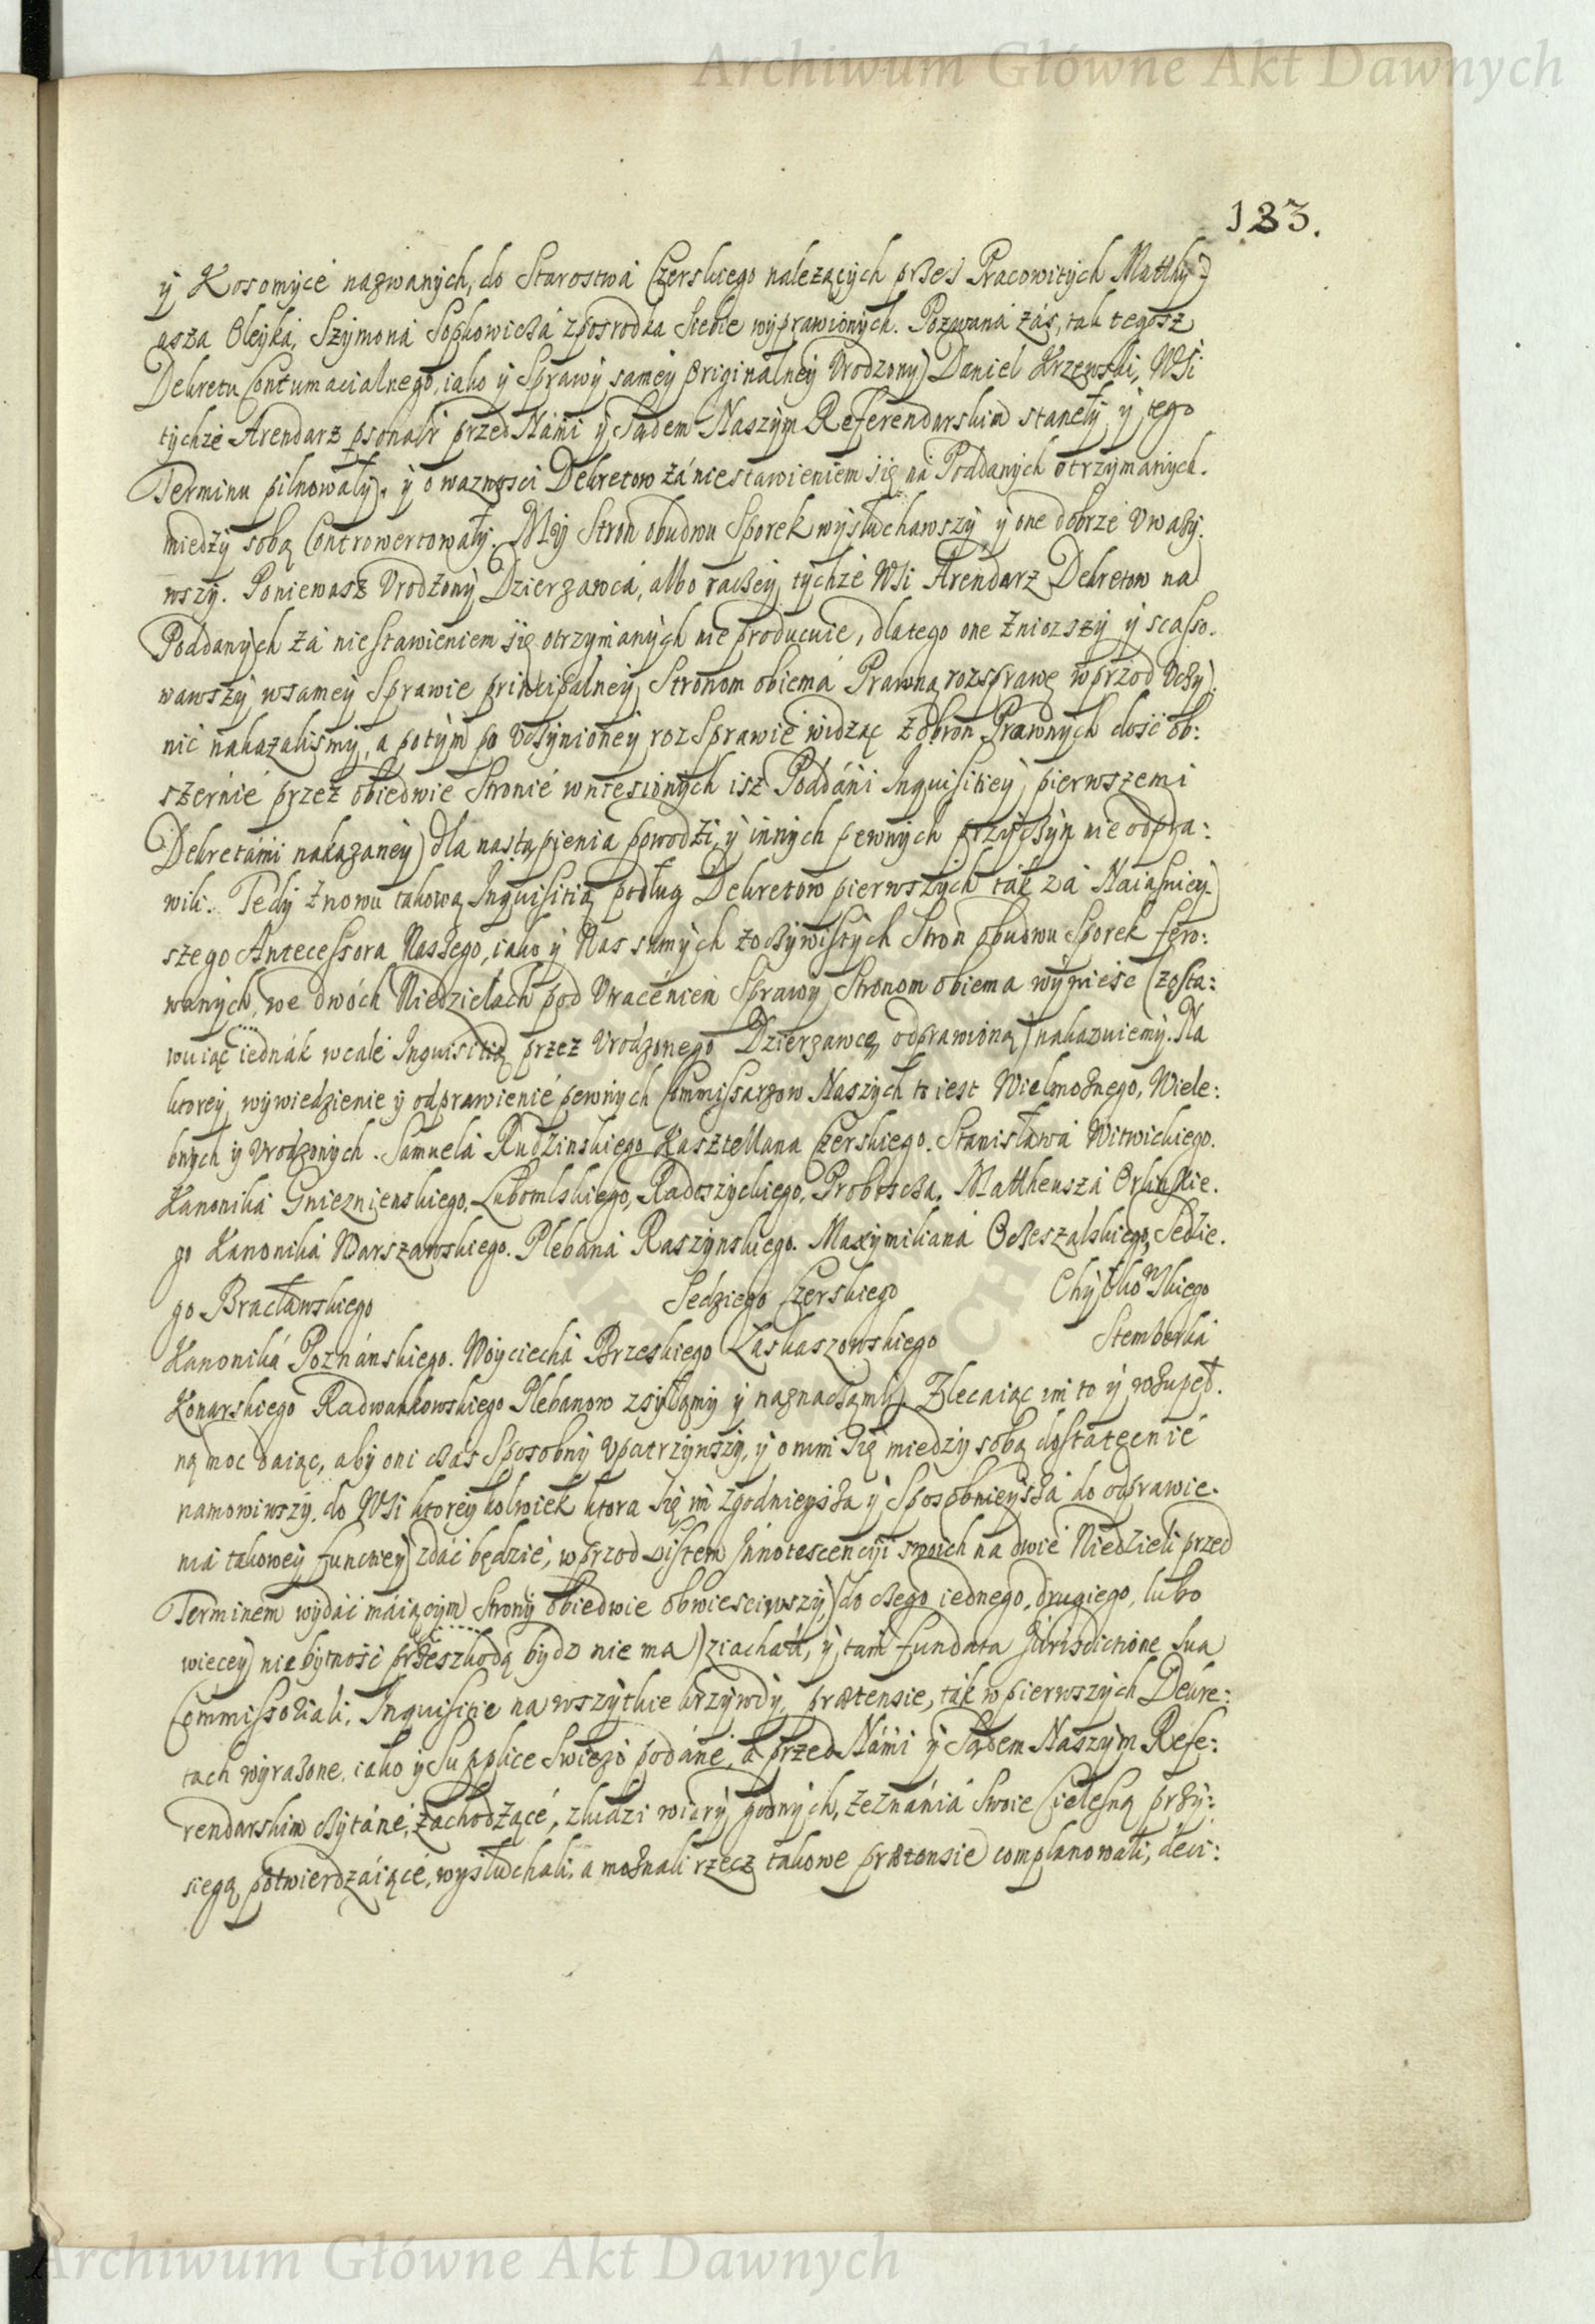 Archiwum Główne Akt Dawnych
183.
ÿ Kosomÿce nazwanÿch, do Starostwa Czerskiego należącÿch przes Pracowitÿch Matthÿ:
asza Oleÿka, Szÿmona Sopkowicza zposrodka siebie wÿprawionÿch. Pozwana zas, tak tegosz
Dekretu Contumacialnego, iako ÿ Sprawÿ sameÿ Originalneÿ Urodzonÿ Daniel Krzewski, WSi
tÿchże Arendarz psonalr przed Nami ÿ Sądem Naszÿm Referendarskim stanełÿ, ÿ tego
Terminu pilnowałÿ, ÿ o waznosci Dekretow za niestawieniem się na Poddanÿch otrzÿmanÿch.
miedzÿ sobą Controwertowałÿ. Mÿ Stron obudwu Sporek wÿsłuchawszÿ, ÿ one dobrze Uważÿ:
wszÿ. Poniewasz Urodzonÿ Dzierzawca, albo raczeÿ tÿchże WSi Arendarz Dekretow na
Poddanÿch za niestawieniem się otrzÿmanÿch nie producuie, dlatego one zniozszÿ ÿ scasso.
wawszÿ, wsameÿ Sprawie principalneÿ Stronom obiema Prawną rozsprawę wprzod Uczÿ:
nic nakazalismÿ, a potÿm po Uczÿnioneÿ rozSprawie widząc z obron Prawnÿch dość ob:
szernie przez obiedwie Stronie wniesionÿch isz Poddani Inquisitieÿ pierwszemi
Dekretami nakazaneÿ dla nastąpienia powodzi, ÿ innÿch pewnÿch przÿczÿn nie odpra:
wili. Tedÿ znowu takową Inquisitią podług Dekretow pierwszÿch tak za Naiasnieÿ
szego Antecessora Naszego, iako ÿ Nas samÿch zoczÿwistÿch Stron obudwu Sporek fero:
wanÿch, we dwóch Niedzielach pod Uracenien Sprawÿ Stronom obiema wÿwieśc (zosta:
wuiąc iednák wcale Inquisitią przez Urodzonego Dzierzawcę odprawioną) nakazuiemÿ. Na
ktoreÿ wÿwiedzienie ÿ odprawienie pewnÿch Commissarzow Naszÿch to iest Wielmożnego, Wiele:
bnÿch ÿ Urodzonÿch. Samuela Rudzinskiego Kasztellana Czerskiego. Stanisława Witwickiego.
Kanonika Gnieznienskiego, Lubomlskiego, Radoszÿckiego, Proboscza. Mattheusza Orlinskie.
go Kanonika Warszawskiego. Plebana Raszÿnskiego. Maxÿmiliana Oczeszalskiego, Sedzie.
go Bracławskiego Sedziego Czerskiego
Kanonika Poznánskiego. Woÿciecha Brzeskiego Laskaszowskiego Stemborka
Konarskiego Radwankowskiego Plebanow zsÿłamÿ ÿ naznaczamÿ, Zlecaiąc im to ÿ wżupeł.
ną moc daiąc, abÿ oni czas Sposobnÿ upatrzÿwszÿ, ÿ onim się miedzÿ sobą dostatecnie
namowiwszÿ. do WSi ktoreÿ kolwiek ktora się im zgodnieÿsza ÿ Sposobnieÿsza do odprawie.
nia takoweÿ functieÿ zdać będzie, wprzod Listem Innotescencÿi swoich na dwie Niedzieli przed
Terminem wÿdać máiącÿm Stronÿ obiedwie obwiesciwszÿ, (do czego iednego, drugiego, lubo
wiecéÿ niebÿtność przeszkodą bÿdz nie ma) ziachali, ÿ tam fundata Jurisdictione sua
Commissoriali, Inquisitie na wszÿtkie krzÿwdÿ, prætensie, tak w pierwszÿch Dekre:
tach wÿrażone. iako ÿ Supplice Swiezo podáne, a przed Námi ÿ Sądem Naszÿm Refe:
rendarskim czÿtáne, zachodzące, zludzi wiarÿ godnÿch, zeznánia swoie Cielesną przÿ:
siegą potwierdzáiące, wÿsłuchali, a możnali rzecz takowe prætensie complanowali, deci:
Archiwum Główne Akt Dawnych